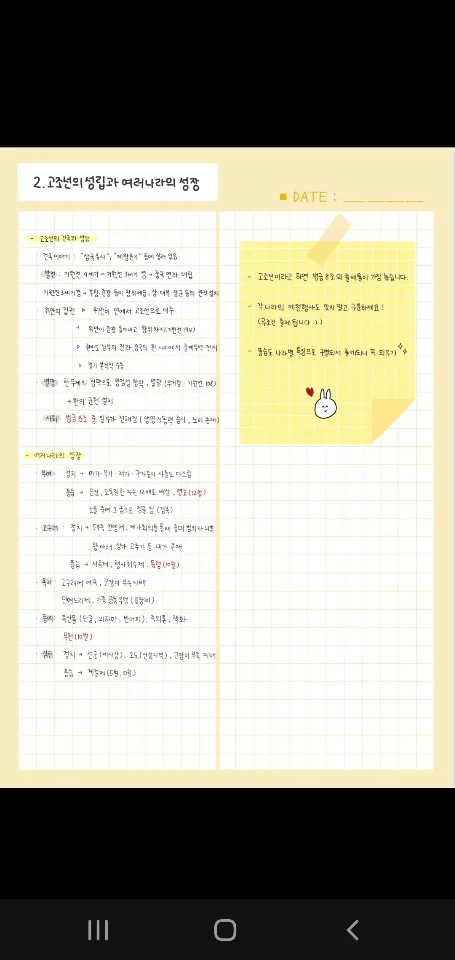 2. 고조선의 성립과 여러나라의 성장
■ DATE : ___ ___ ___
- 고조선의 건국과 성장
· 건국이야기 : "삼국유사", "제왕운기" 등에 실려 있음
· 발전 : 기원전 4세기 ~ 기원전 3세기 경 → 중국 연과 대립
기원전 3세기경 → 부왕, 준왕 등이 왕위세습, 상, 대부, 장군 등의 관직 설치
· 위만의 집권 ▷ 위만이 연에서 고조선으로 이주
→ 위만이 준왕 몰아내고 왕위 차지 (기원전 194)
▷ 한반도 남부의 진과 중국의 한 사이에서 중계무역 전개
▷ 철기 본격적 수용
· 멸망 : 한 무제의 침략으로 왕검성 함락, 멸망 (우거왕 : 기원전 108)
→ 한의 군현 설치
· 사회 : 범금 8조 중 일부가 전해짐 ( 생명·노동력 중시, 노비 존재)
- 여러나라의 성장
· 부여 : 정치 → 마가·우가·저가·구가들이 사출도 다스림
풍습 → 순장, 도둑질한 자는 12배로 배상, 영고 (12월)
소를 죽여 그 굽으로 점을 침 (점복)
· 고구려 : 정치 → 5부족 연맹체, 제가회의를 통해 중대 범죄자 처벌
왕 아래 상가·고추가 등 대가 존재
풍습 → 서옥제, 형사취수제, 동맹 (10월)
· 옥저 : 고구려에 예속, 군장이 부족 지배
민며느리제, 가족 공동 무덤 (골장제)
· 동예 : 특산물 (단궁, 과하마, 반어피), 족외혼, 책화
무천 (10월)
· 삼한 : 정치 → 천군 (제사장), 소도 (신성지역), 군장이 부족 지배
풍습 → 계절제 (5월, 10월)
- 고조선이라고 하면 범금 8조의 출제율이 가장 높습니다.
- 각 나라의 제천행사도 잊지 말고 구분하세요!
(목조건 출제됩니다 :-) )
- 풍습도 나라별 특징으로 구별되서 출제되니 꼭 외우기